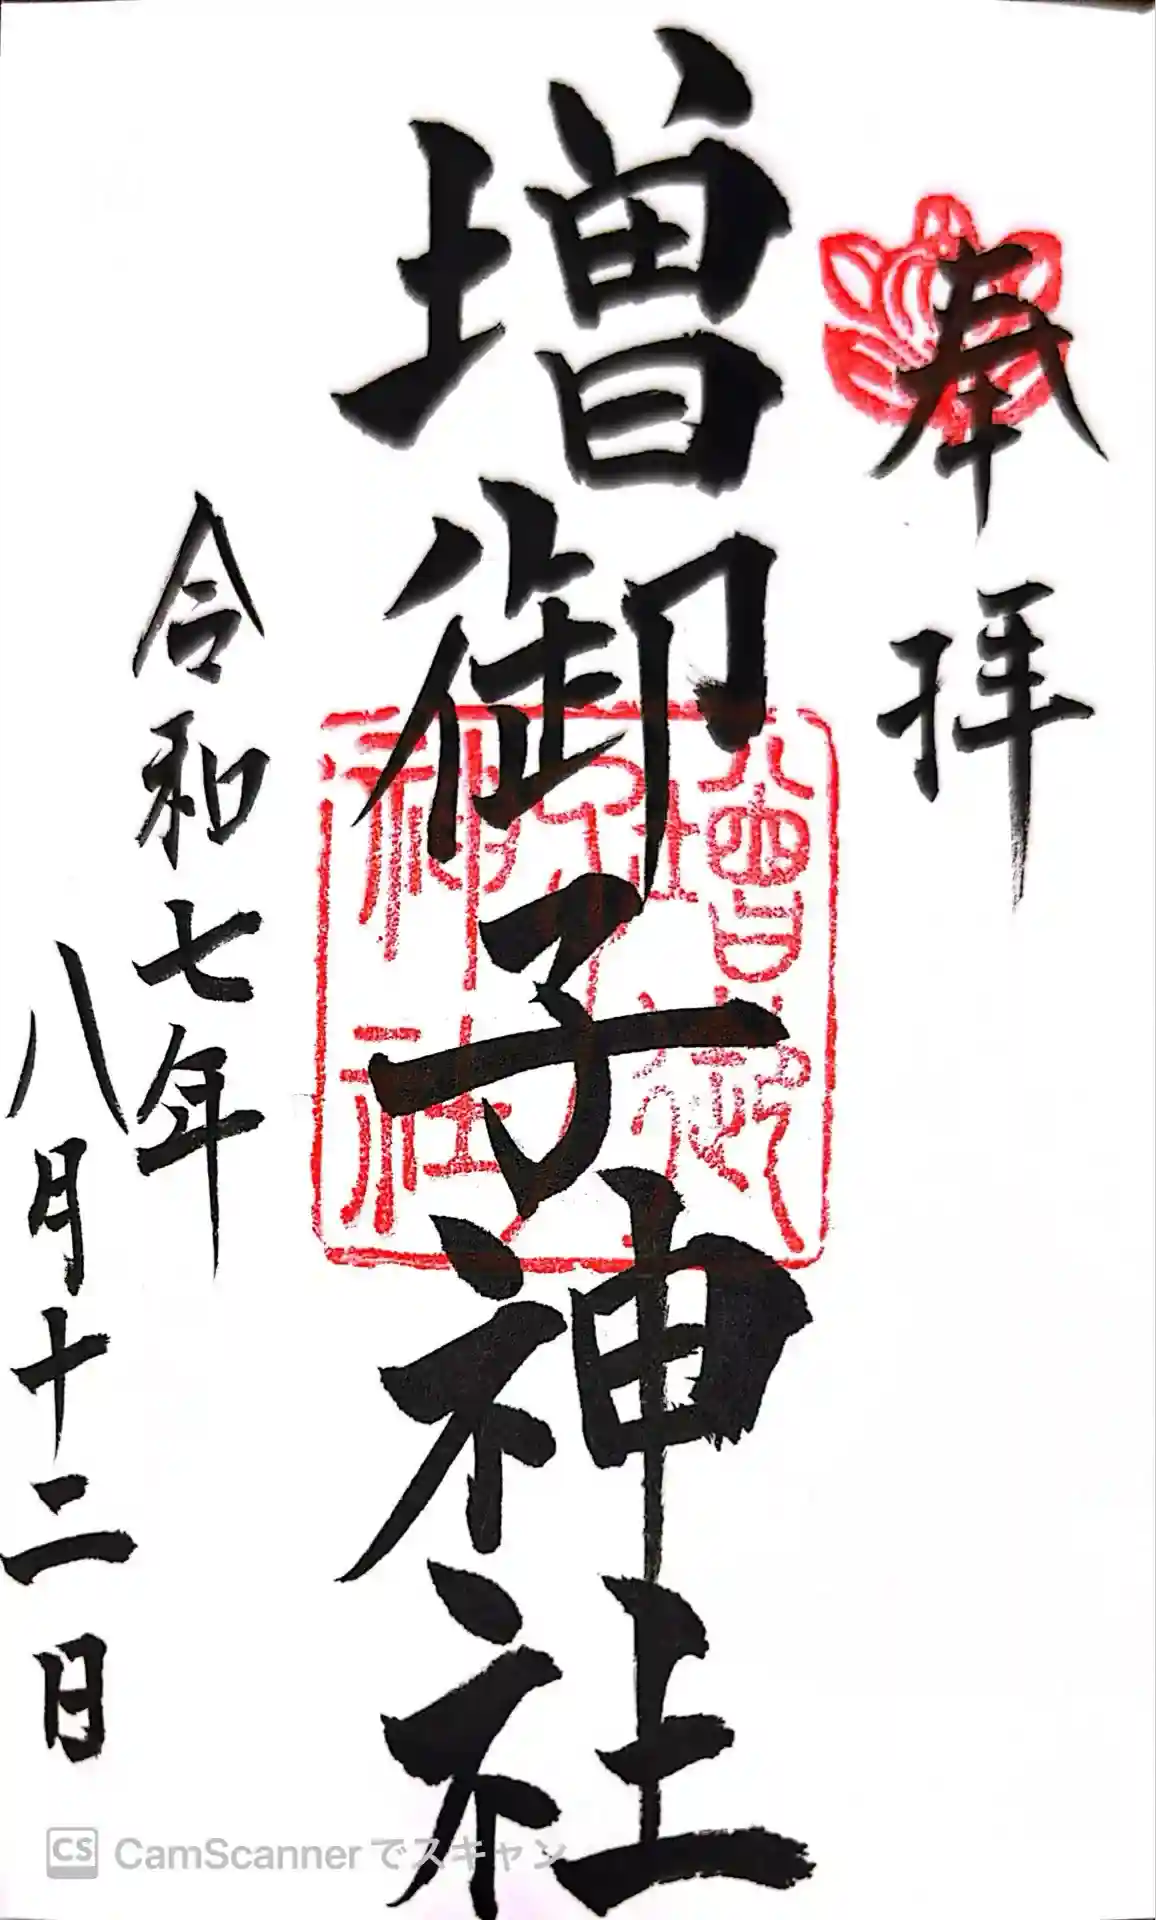 奉拝
増御子神社
増御子神社
令和七年
八月十二日
CS CamScannerでスキャン